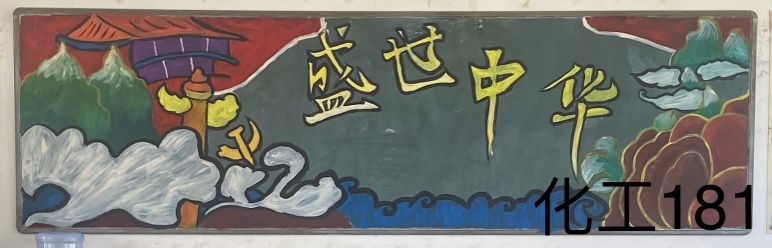 盛世中华
化工181